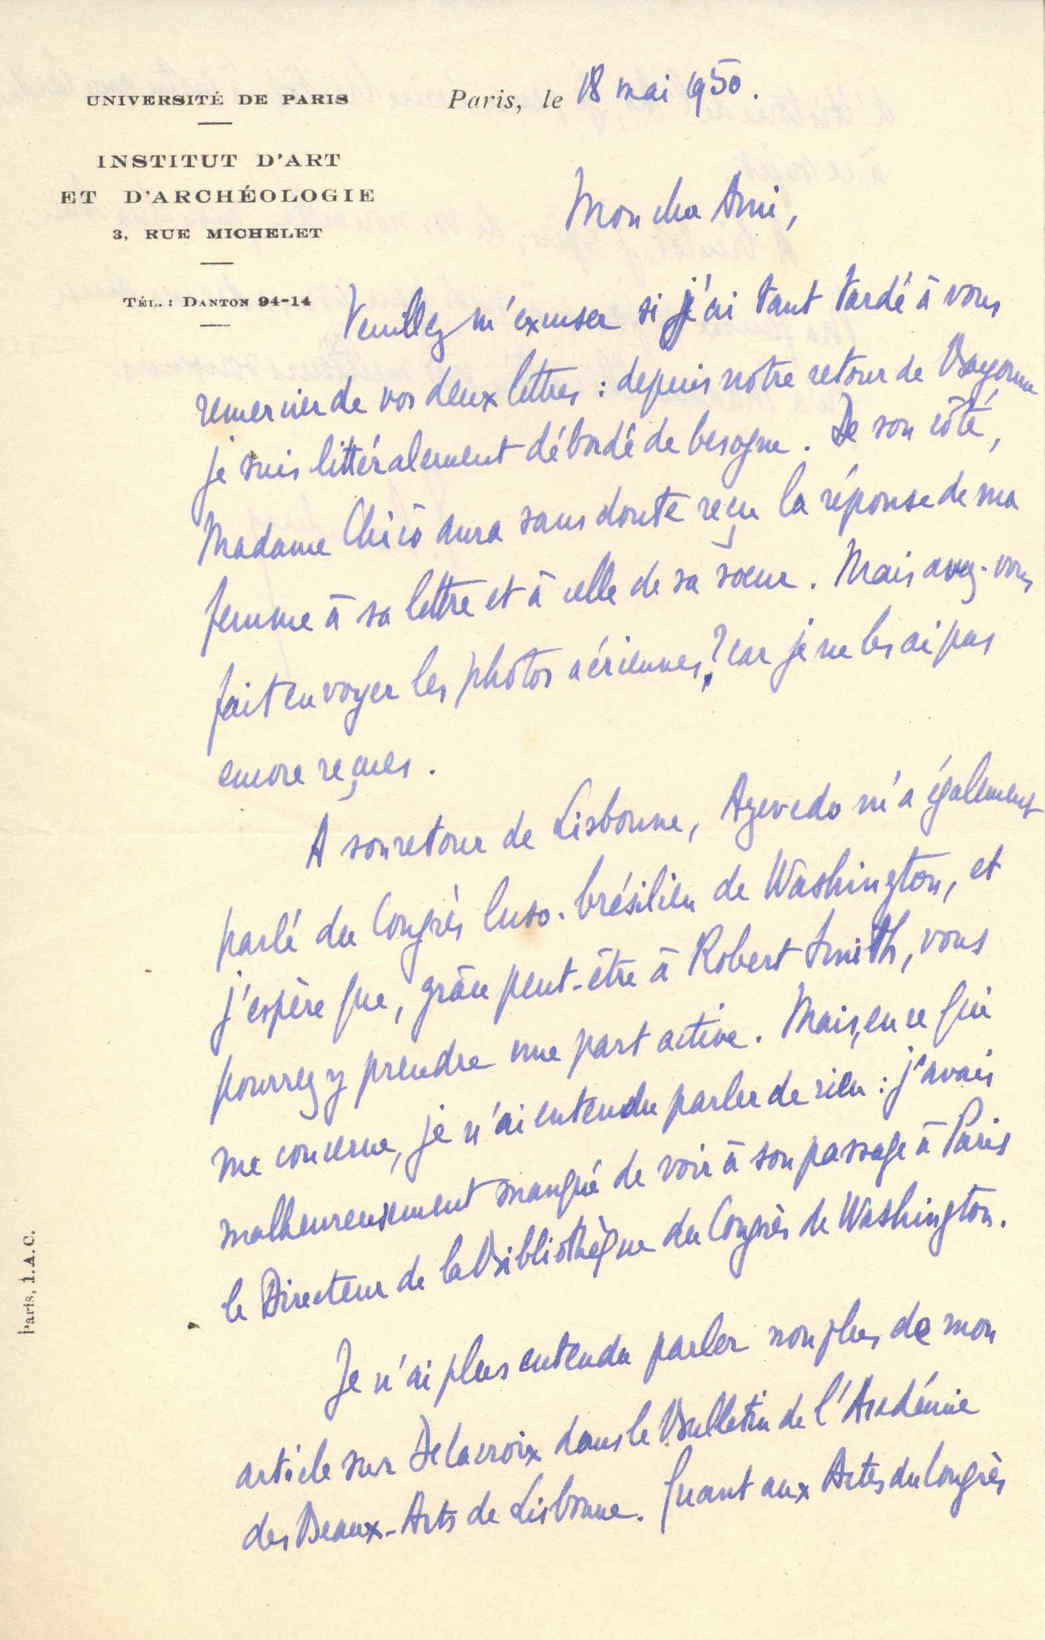 UNIVERSITÉ DE PARIS
INSTITUT D'ART
ET D'ARCHÉOLOGIE
3, RUE MICHELET
TÉL. : DANTON 94-14
Paris, le 18 mai 1950.
Mon cher Ami,
Veuillez m'excuser si j'ai tant tardé à vous
remercier de vos deux lettres : depuis notre retour de Bayonne
je suis littéralement débordé de besogne. De son côté,
Madame Chicó aura sans doute reçu la réponse de ma
femme à sa lettre et à celle de sa soeur. Mais avez-vous
fait envoyer les photos aériennes ? car je ne les ai pas
encore reçues.
A son retour de Lisbonne, Azevedo m'a également
parlé du Congrès luso-brésilien de Washington, et
j'espère que, grâce peut-être à Robert Smith, vous
pourrez y prendre une part active. Mais, en ce qui
me concerne, je n'ai entendu parler de rien : j'avais
malheureusement manqué de voir à son passage à Paris
le Directeur de la Bibliothèque du Congrès de Washington.
Je n'ai plus entendu parler non plus de mon
article sur Delacroix dans le Bulletin de l'Académie
des Beaux-Arts de Lisbonne. Quant aux Actes du Congrès
Paris, I.A.C.